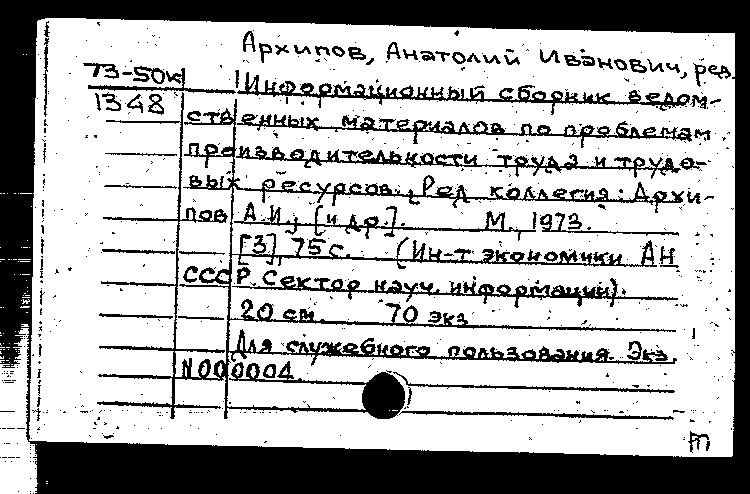 Архипов, Анатолий Иванович, ред.
73-50к Информационный сборник ведом-
1348 ственных материалов по проблемам
производительности труда и трудо-
вых ресурсов. Ред коллегия: Архи-
пов А.И., [и др.]. М., 1973.
[3], 75 с. (Ин-т экономики АН
СССР. Сектор науч. информации).
20 см. 70 экз
Для служебного пользования. Экз.
N000004.